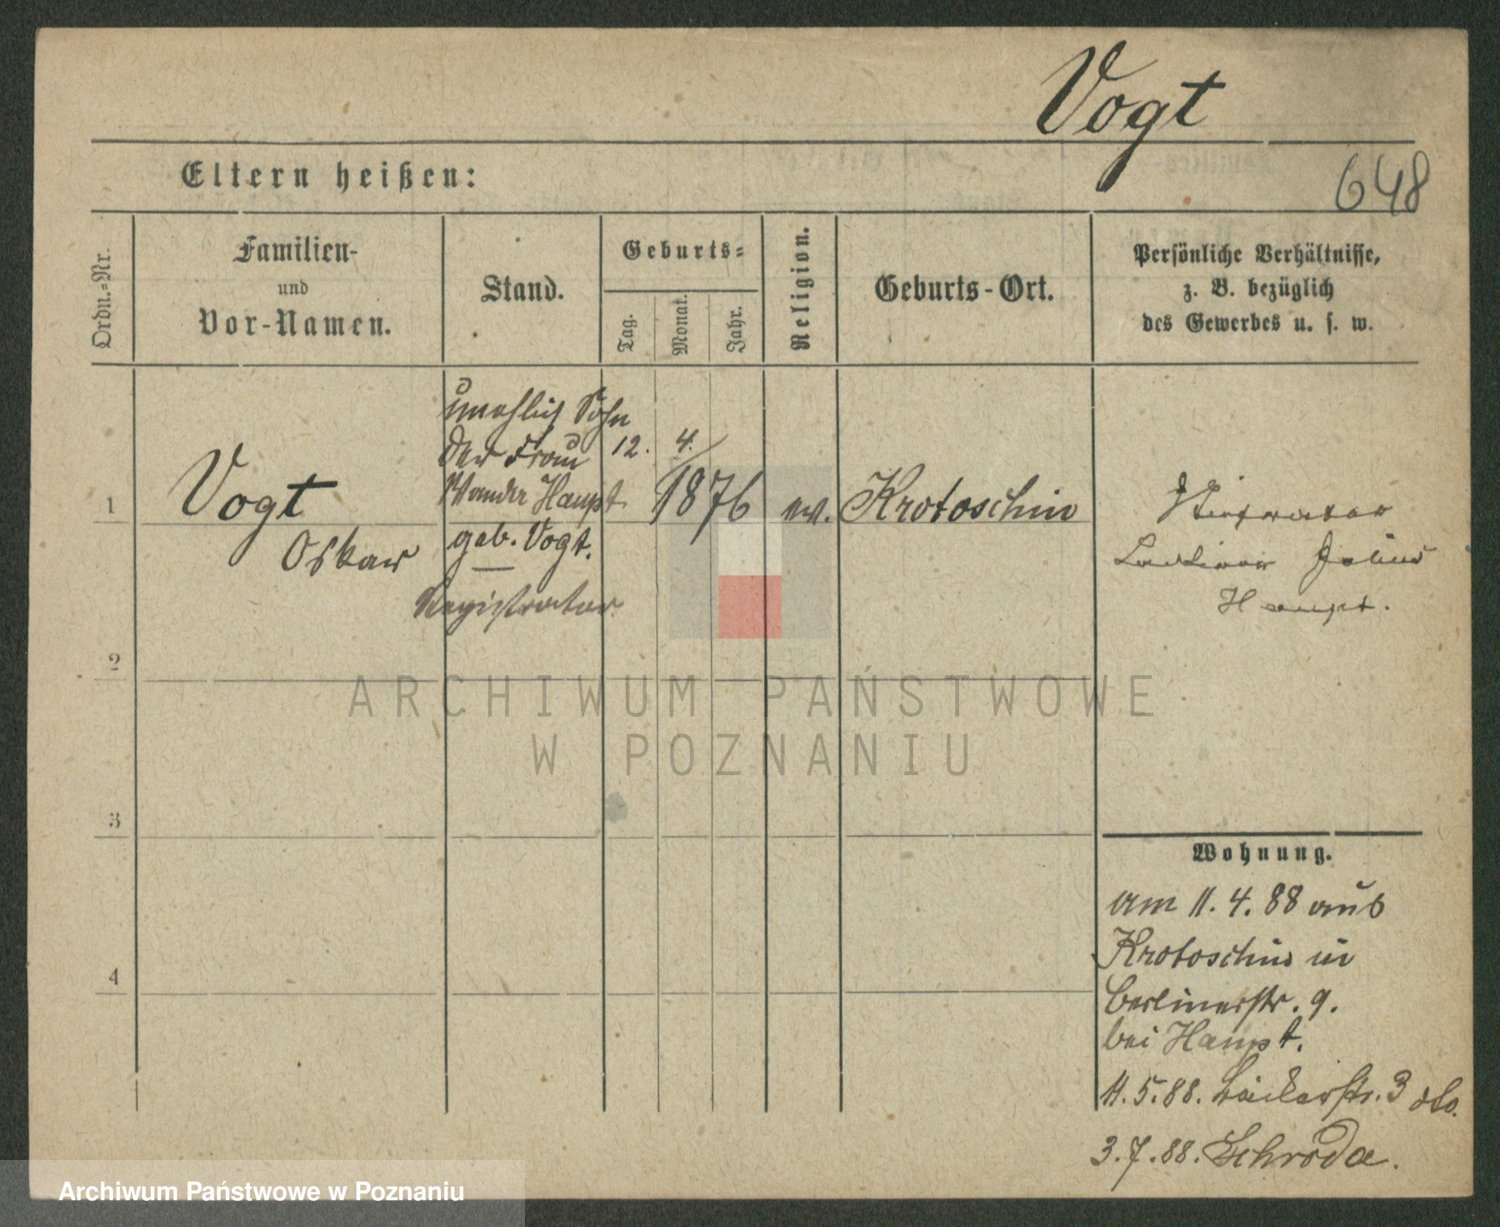 Vogt
648
Eltern heißen:
Ordn.=Nr.
Familien-
und
Vor-Namen.
Stand.
Geburts=
Tag.
Monat.
Jahr.
Religion.
Geburts-Ort.
Persönliche Verhältnisse,
z. B. bezüglich
des Gewerbes u. s. w.
1
Vogt
Oskar
unehlich Sohn
der Frau
Haupt
geb. Vogt.
Registrator
12. 4.
1876
ev.
Krotoschin
Julius
Haupt.
2
3
4
Wohnung.
am 11. 4. 88 aus
Krotoschin in
Berlinerstr. 9.
bei Haupt.
11. 5. 88. Bäckerstr. 3 dto.
3. 7. 88. Schroda.
ARCHIWUM PAŃSTWOWE
W POZNANIU
Archiwum Państwowe w Poznaniu